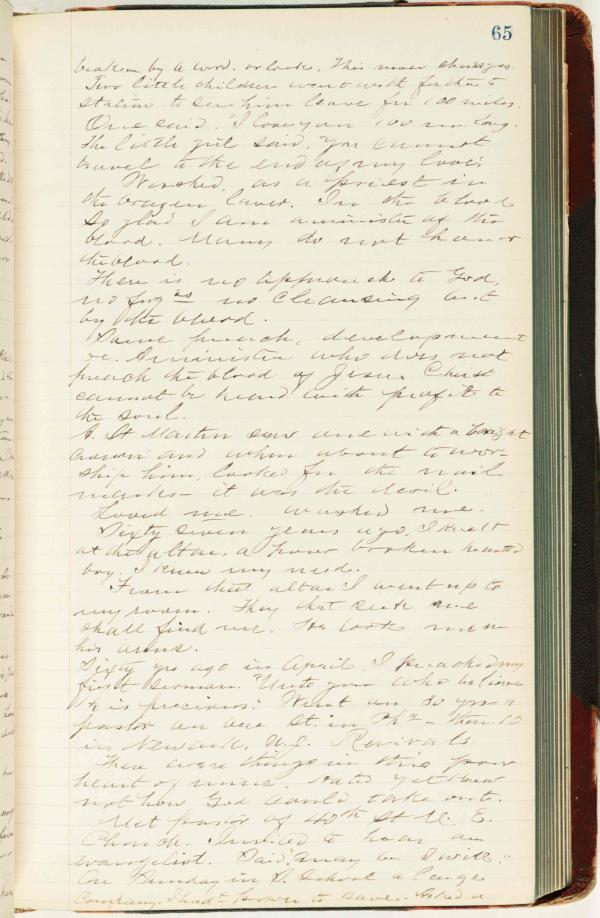 65
broken by a word, or look. This never changes.
Two little children went with father to
station to see him leave for 100 miles.
One said, "I love you 100 m. long.
The little girl said, "you cannot
travel to the end of my love."
Washed, as a priest in
the brazen laver. In the blood
So glad I am a minister of the
blood. Many do not honor
the blood.
There is no approach to God,
no forg^es no cleansing but
by the blood.
Some preach, development
&c. A minister who does not
preach the blood of Jesus Christ
cannot be heard with profit to
the soul.
A. St Martin saw one with a bright
crown and when about to wor-
ship him, looked for the nail
marks - it was the devil.
Loved me. Washed me.
Sixty seven years ago, I knelt
at the altar, a poor broken hearted
boy. I knew my need.
From that altar I went up to
my room. They that seek me
shall find me. He took me in
his arms.
Sixty yrs ago in April, I preached my
first sermon. "Unto you who believe
He is precious." Went on 30 yrs a
pastor on one St. in Ph^a - then 10
in Newark, N.J. Revivals.
There were things in this poor
heart of mine. Hated yet knew
not how God could take out.
Met pastor of 40th St M. E.
Church. Invited to hear an
evangelist. Said, "may be I will."
On Sunday in S. School a large
company. I had to save. Asked a